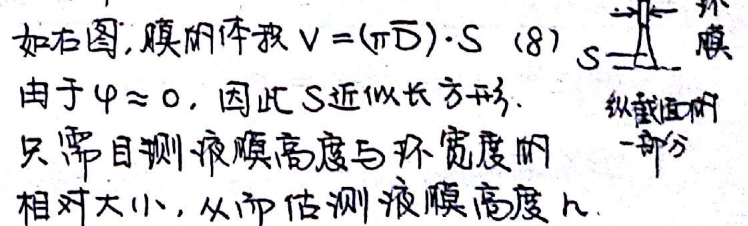 如右图,膜的体积 V=(πD̅)·S (8)
由于φ≈0,因此S近似长方形.
只需目测液膜高度与环宽度的
相对大小,从而估测液膜高度h.
环
膜
S
纵截面的
一部分